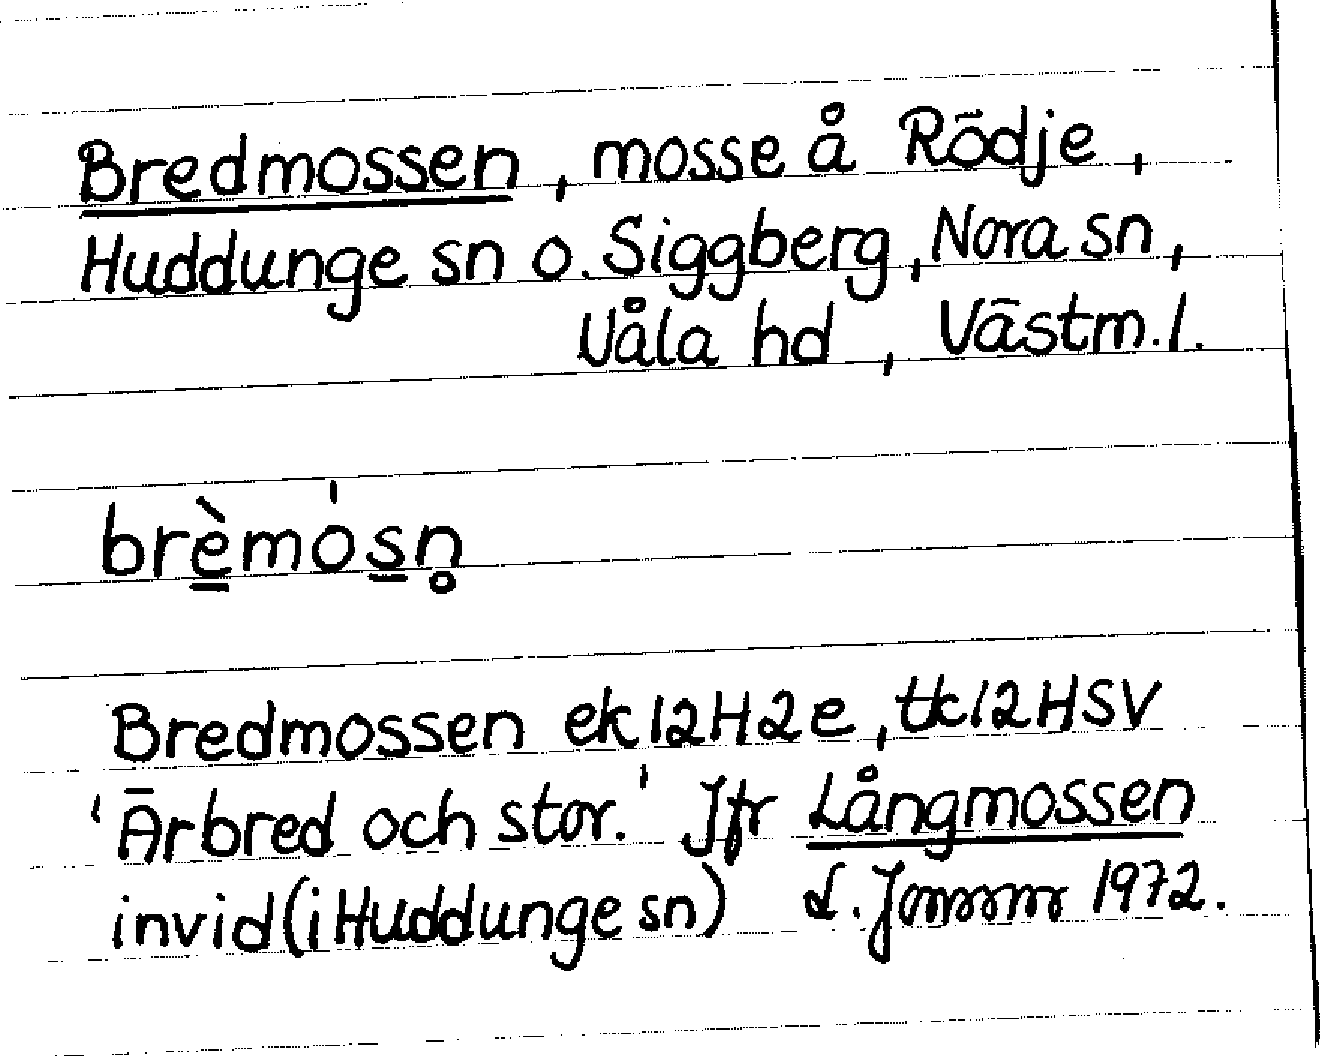 Bredmossen, mosse å Rödje,
Huddunge sn o. Siggberg, Nora sn,
Våla hd, Västm.l.
brè̠mós̠n̥
Bredmossen ek 12H2e, tk 12HSV
'Är bred och stor.' Jfr Långmossen
invid (i Huddunge sn) 1972.